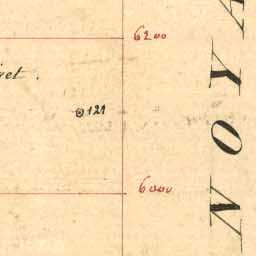 6200
121
6000
NOYA